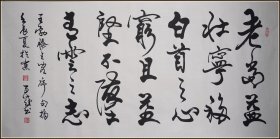 老當益
壯寧移
白首之心
窮且益
堅不墜
青雲之志
王勃滕王閣序句